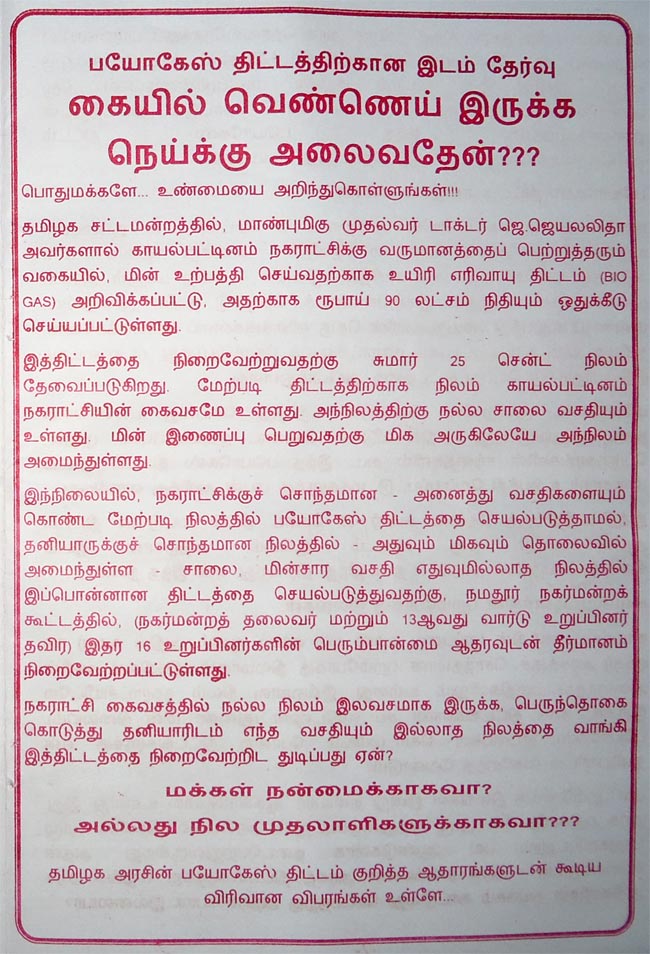 பயோகேஸ் திட்டத்திற்கான இடம் தேர்வு
கையில் வெண்ணெய் இருக்க
நெய்க்கு அலைவதேன்???
பொதுமக்களே... உண்மையை அறிந்துகொள்ளுங்கள்!!!
தமிழக சட்டமன்றத்தில், மாண்புமிகு முதல்வர் டாக்டர் ஜெ.ஜெயலலிதா
அவர்களால் காயல்பட்டினம் நகராட்சிக்கு வருமானத்தைப் பெற்றுத்தரும்
வகையில், மின் உற்பத்தி செய்வதற்காக உயிரி எரிவாயு திட்டம் (BIO
GAS) அறிவிக்கப்பட்டு, அதற்காக ரூபாய் 90 லட்சம் நிதியும் ஒதுக்கீடு
செய்யப்பட்டுள்ளது.
இத்திட்டத்தை நிறைவேற்றுவதற்கு சுமார் 25 சென்ட் நிலம்
தேவைப்படுகிறது. மேற்படி திட்டத்திற்காக நிலம் காயல்பட்டினம்
நகராட்சியின் கைவசமே உள்ளது. அந்நிலத்திற்கு நல்ல சாலை வசதியும்
உள்ளது. மின் இணைப்பு பெறுவதற்கு மிக அருகிலேயே அந்நிலம்
அமைந்துள்ளது.
இந்நிலையில், நகராட்சிக்குச் சொந்தமான - அனைத்து வசதிகளையும்
கொண்ட மேற்படி நிலத்தில் பயோகேஸ் திட்டத்தை செயல்படுத்தாமல்,
தனியாருக்குச் சொந்தமான நிலத்தில் - அதுவும் மிகவும் தொலைவில்
அமைந்துள்ள - சாலை, மின்சார வசதி எதுவுமில்லாத நிலத்தில்
இப்பொன்னான திட்டத்தை செயல்படுத்துவதற்கு, நமதூர் நகர்மன்றக்
கூட்டத்தில், (நகர்மன்றத் தலைவர் மற்றும் 13ஆவது வார்டு உறுப்பினர்
தவிர) இதர 16 உறுப்பினர்களின் பெரும்பான்மை ஆதரவுடன் தீர்மானம்
நிறைவேற்றப்பட்டுள்ளது.
நகராட்சி கைவசத்தில் நல்ல நிலம் இலவசமாக இருக்க, பெருந்தொகை
கொடுத்து தனியாரிடம் எந்த வசதியும் இல்லாத நிலத்தை வாங்கி
இத்திட்டத்தை நிறைவேற்றிட துடிப்பது ஏன்?
மக்கள் நன்மைக்காகவா?
அல்லது நில முதலாளிகளுக்காகவா???
தமிழக அரசின் பயோகேஸ் திட்டம் குறித்த ஆதாரங்களுடன் கூடிய
விரிவான விபரங்கள் உள்ளே...